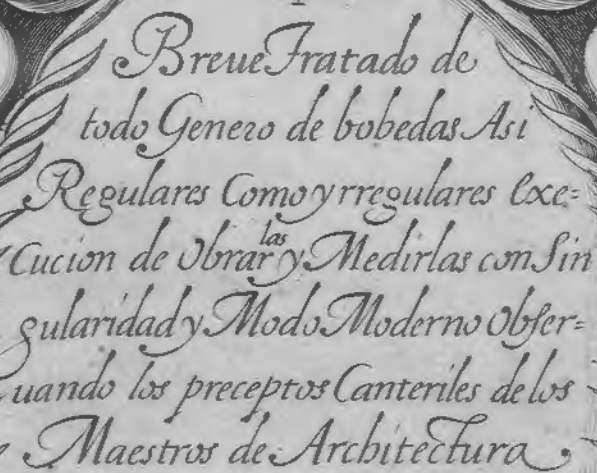 Breue Tratado de
todo Genero de bobedas Asi
Regulares Como yrregulares exe=
cucion de Obrarlas y Medirlas con Sin
gularidad y Modo Moderno Obser=
uando los preceptos Canteriles de los
Maestros de Architectura.